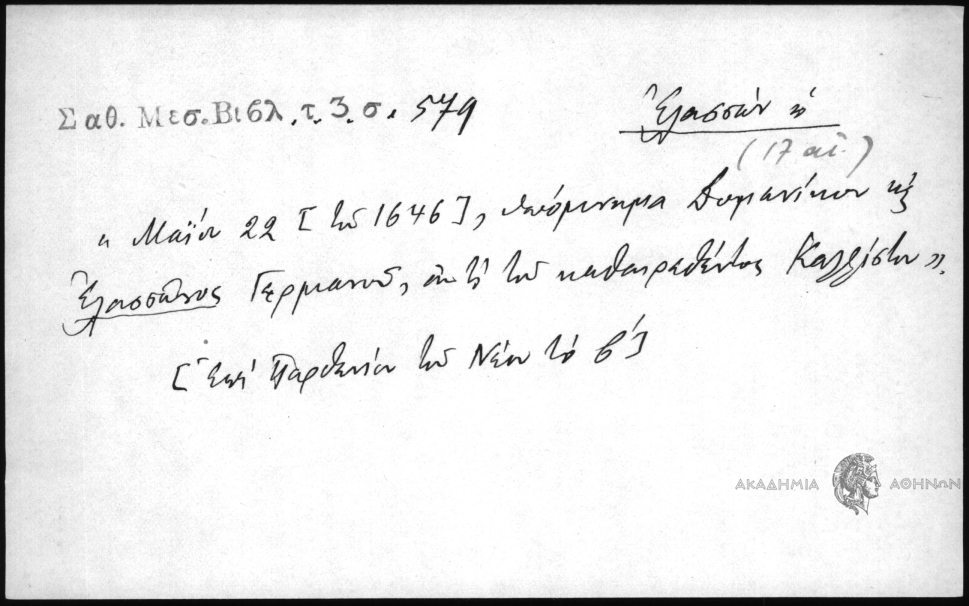 Σαθ. Μεσ. Βιβλ. τ. 3. σ. 579
Ἐλασσών ἡ
(17 αἰ.)
« Μαΐου 22 [τοῦ 1646], ὑπόμνημα Δομενίκου κ̀
Ἐλασσῶνος Γερμανοῦ, ἀντὶ τοῦ καθαιρεθέντος Καλλίστου».
[Ἐπὶ Παρθενίου τοῦ Νέου τὸ β΄]
ΑΚΑΔΗΜΙΑ ΑΘΗΝΩΝ